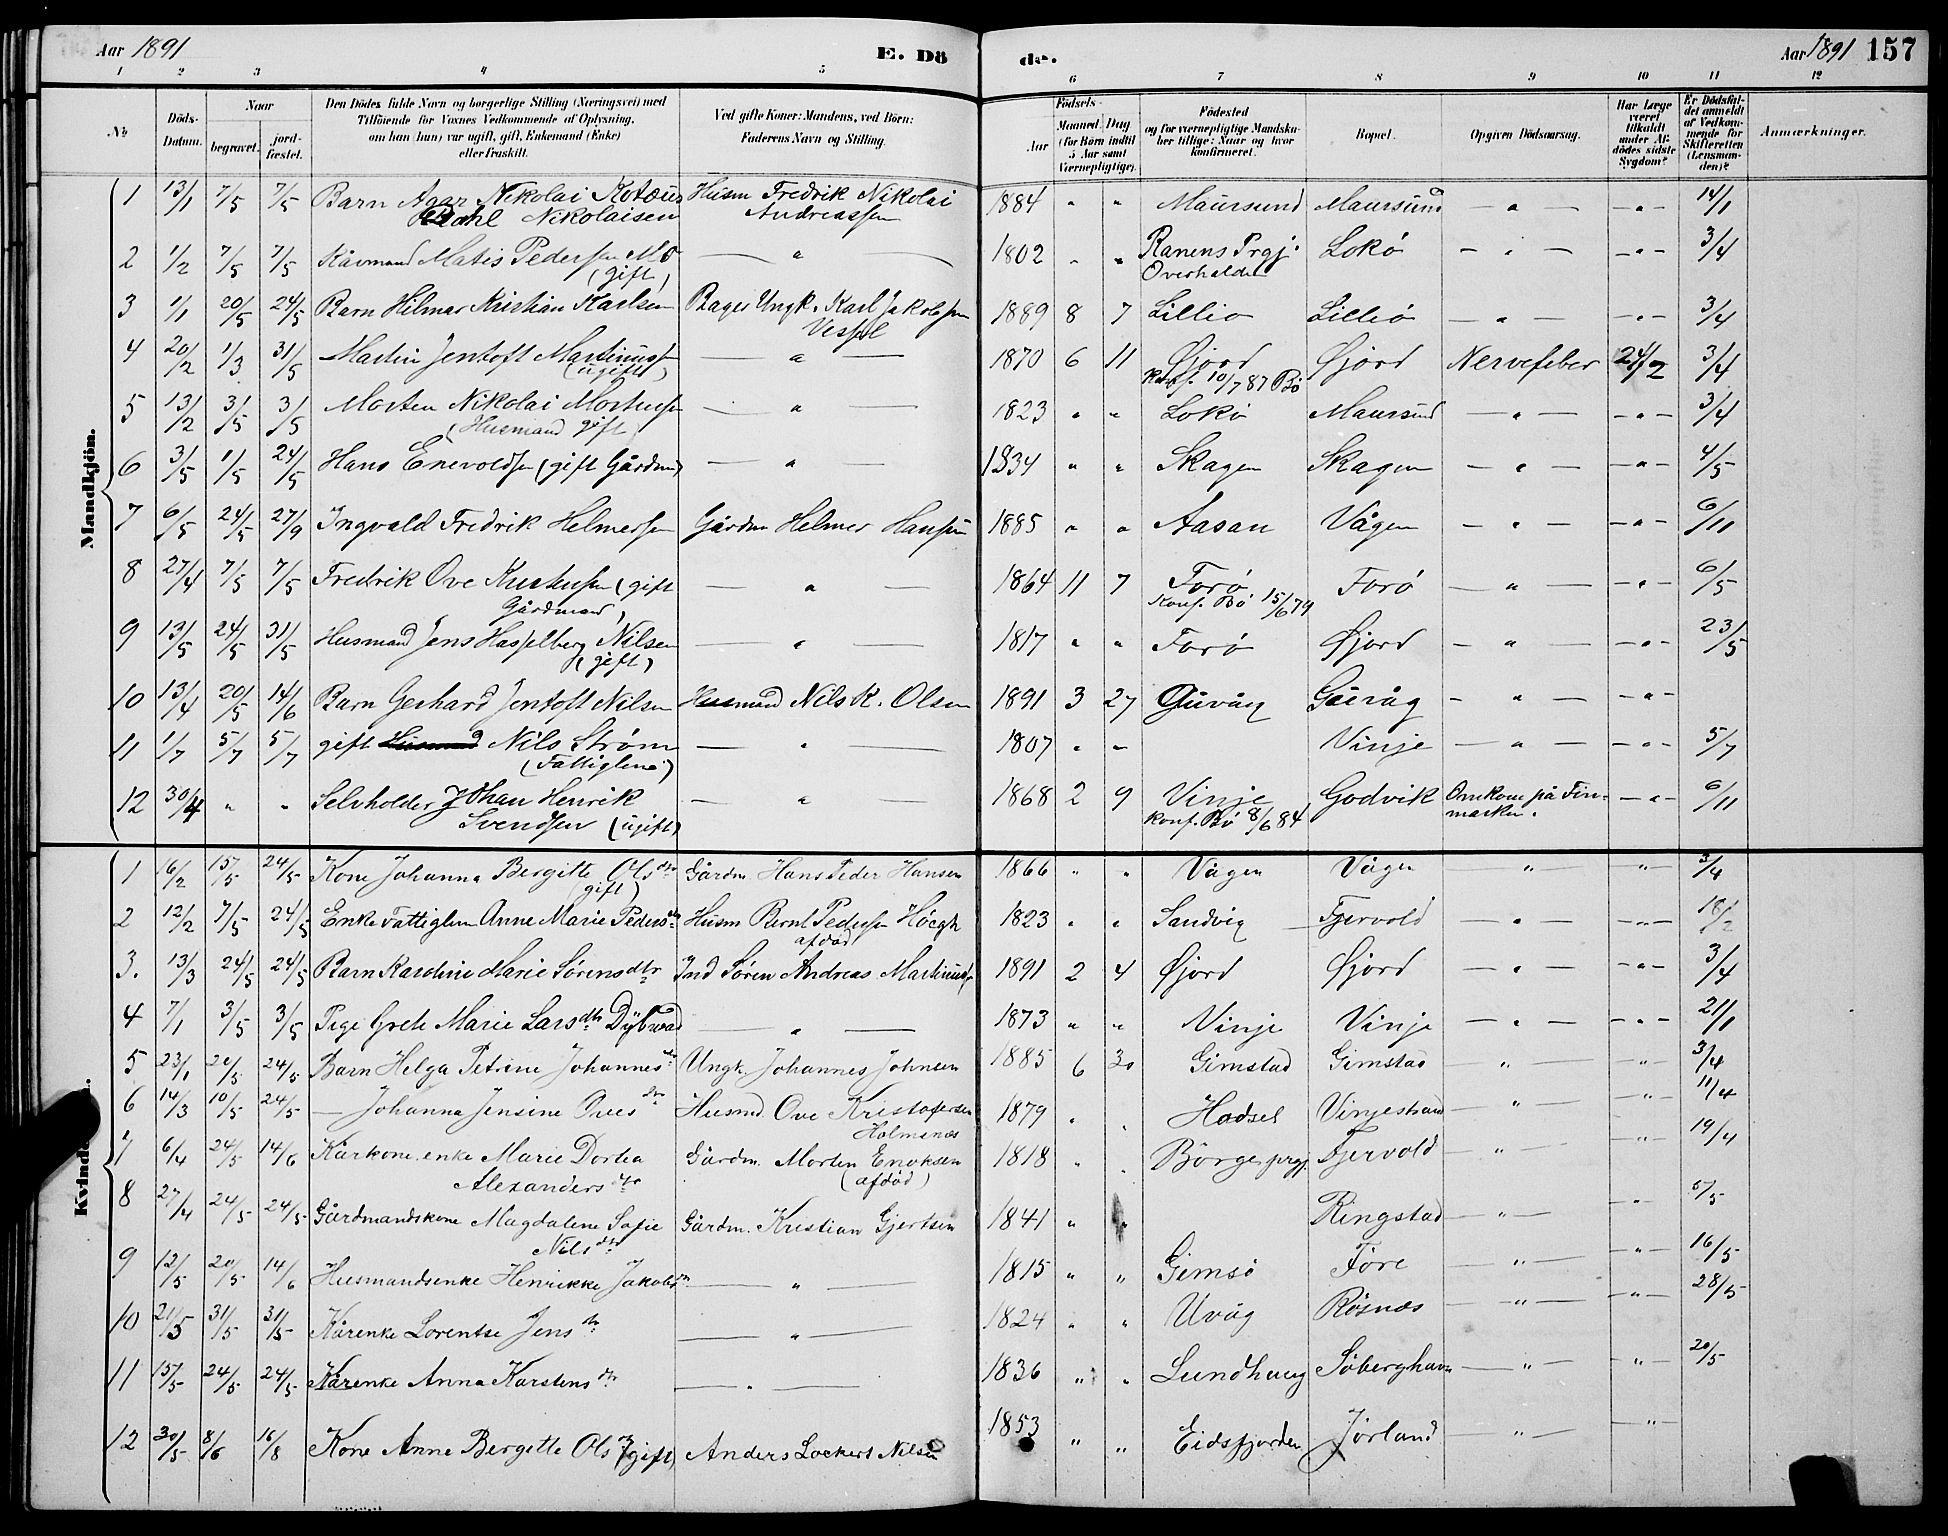 Aar 1891 E. Dö de. Aar 1891 157
1 2 3 4 5 6 7 8 9 10 11 12
No
Döds-Datum.
Naar
begravet.
jord-fæstet.
Den Dödes fulde Navn og borgerlige Stilling (Næringsvei) med
Tilföiende for Voxnes Vedkommende af Oplysning,
om han (hun) var ugift, gift, Enkemand (Enke)
eller fraskilt.
Ved gifte Koner: Mandens, ved Börn:
Faderens Navn og Stilling.
Födsels-
Aar
Maaned. Dag
(for Börn indtil
5 Aar samt
Værnepligtige).
Födested
og for værnepligtige Mandska-
ber tillige: Naar og hvor
konfirmeret.
Bopæl.
Opgiven Dödsaarsag.
Har Læge
været
tilkaldt
under Af-
dödes sidste
Sygdom?
Er Dödsfal-
det anmeldt
af Vedkom-
mende for
Skifteretten
(Lensman-
den)?
Anmærkninger.
Mandkjön.
1 13/1 7/5 7/5 Barn Nikolai Husm Fredrik Nikolai 1884 " " Maursund Maursund — " — — " — 14/1
Nikolaisen Andreassen
2 1/2 7/5 7/5 Kårmand Matis Pedersen Mo — " — 1802 " " Ranens Prgj. Lokö — " — — " — 3/4
(gift) Overhalden
3 1/1 20/5 24/5 Barn Hilmar Kristian Karlsen Ungk. Karl Jakobsen 1889 8 7 Lilliö Lilliö — " — — " — 3/4
4 20/2 1/3 31/5 Martin Jentoft Martinussen — " — 1870 6 11 Øjord Øjord Nervefeber 24/2 3/4
(ugift) Konf. 10/7 87 Bö
5 13/2 3/5 3/5 Morten Nikolai Mortensen — " — 1823 " " Lokö Maursund — " — — " — 3/4
(Husmand gift)
6 3/5 1/5 24/5 Hans Enevoldsen (gift Gårdm) — " — 1834 " " Skagen Skagen — " — — " — 4/5
7 6/5 24/5 27/9 Ingvald Fredrik Helmersen Gårdm Helmer Hansen 1885 " " Aasan Vågen — " — — " — 6/11
8 27/4 7/5 7/5 Fredrik Ove (gift — " — 1864 11 7 Forö Forö — " — — " — 6/5
Gårdmand) Konf. Bö 15/6 79
9 13/5 24/5 31/5 Husmand Jens Hasselberg Nilsen — " — 1817 " " Forö Øjord — " — — " — 23/5
(gift)
10 13/4 20/5 14/6 Barn Gerhard Jentoft Nilsen Husmand Nils K. Olsen 1891 3 27 Guvåg Guvåg — " — — " —
11 1/7 5/7 5/7 gift Nils Strøm — " — 1807 " " Vinje — " — — " — 5/7
(Fattiglem)
12 30/4 " " Selvholder Johan Henrik — " — 1868 2 9 Vinje Godvik Omkom på Fin- — " — 6/11
Svendsen (ugift) Konf. Bö 8/6 84 marken.
1 16/2 15/5 24/5 Kone Johanna Bergitte Olsdtr Gårdm. Hans Peder Hansen 1866 " " Vågen Vågen " " 3/4
(gift)
2 12/2 7/5 24/5 Enke Fattiglem Anne Marie Pedersdtr Husm Bernt Pedersen Höegh 1823 " " Sandvig Fjervold — " — — " — 18/2
afdød
3. 13/3 24/5 24/5 Barn Karoline Marie Sørensdtr Ind Søren Andreas Martinus 1891 2 4 Øjord Øjord — " — — " — 3/4
4 7/1 3/5 3/5 Pige Grete Marie Larsdtr Dybwad — " — 1873 " " Vinje Vinje — " — — " — 21/1
5 23/1 24/5 24/5 Barn Helga Petrine Johannesdtr Ungk. Johannes Johnsen 1885 6 30 Gimstad Gimstad — " — " 3/4
6 14/3 10/5 24/5 — Johanna Jensine Ovesdtr Husmd Ove Kristofersen 1879 " " Hadsel Vinjestrand — " — " 11/4
Holmenæs
7 6/4 24/5 14/6 Kårkone enke Marie Dortea Gårdm. Morten Enoksen 1818 " " Börge prgj. Fjervold — " — " 19/4
Alexandersdtr (afdöd)
8 27/4 24/5 24/5 Gårdmandskone Magdalene Sofie Gårdm. Kristian Gjertsen 1841 " " Ringstad — " — — " — 5/5
Nilsdtr
9 12/5 20/5 14/6 Husmandsenke Henrikke Jakobsdtr — " — 1815 " " Gimsö Före — " — — " — 16/5
10 21/5 31/5 31/5 Kårenke Lorentse Jensdtr — " — 1824 " " Uvåg Røsnæs — " — — " — 28/5
11 15/5 24/5 24/5 Kårenke Anna Karstensdtr — " — 1836 " " Lundhaug Söberghavn — " — " 20/5
12 30/5 8/6 16/8 Kone Anne Bergitte Olsdtr (gift) Anders Lockert Nilsen 1853 " " Eidsfjorden Jörland — " — — " —